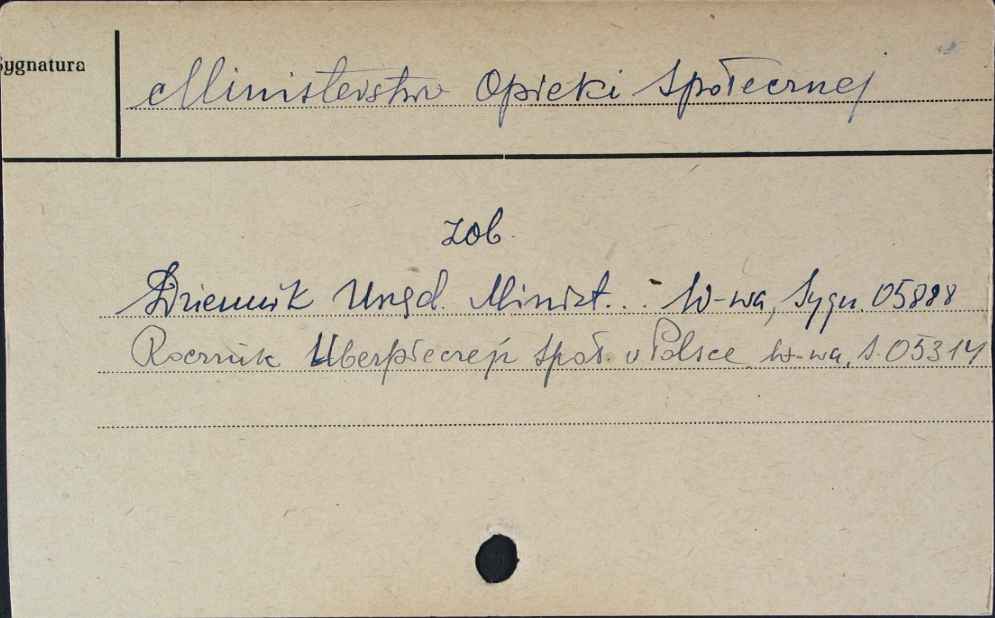 Sygnatura
Ministerstwo Opieki Społecznej
zob.
Dziennik Urzęd. Minist... W-wa, Sygn. 05888
Rocznik Ubezpieczeń Społ. w Polsce W-wa, S. 05314